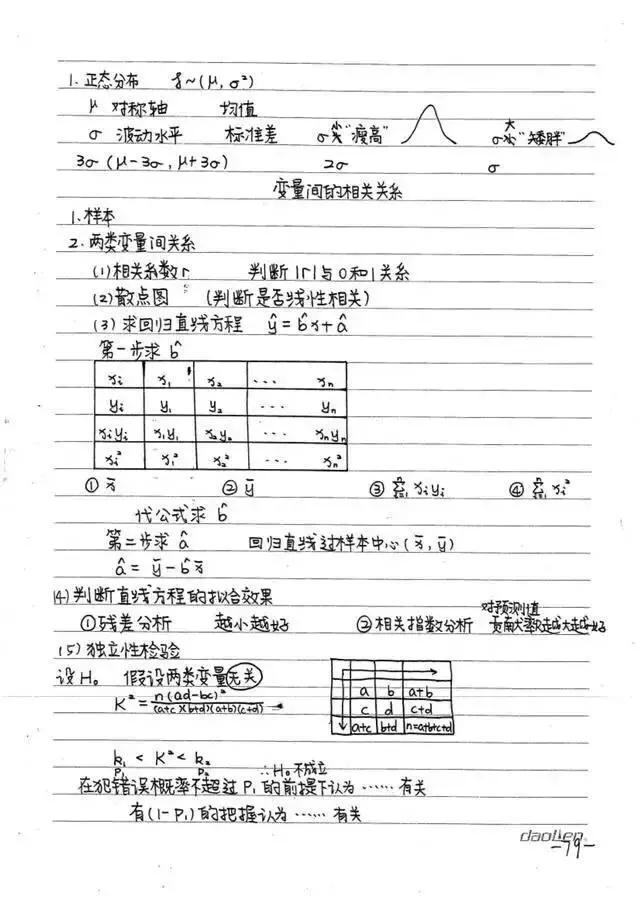 1. 正态分布 ξ~(μ, σ²)
μ 对称轴 均值
σ 波动水平 标准差 σ小"瘦高" σ大"矮胖"
3σ (μ-3σ, μ+3σ) 2σ σ
变量间的相关关系
1. 样本
2. 两类变量间关系
(1) 相关系数r 判断|r|与0和1关系
(2) 散点图 (判断是否线性相关)
(3) 求回归直线方程 ŷ=b̂x+â
第一步求 b̂
xi x₁ x₂ ... xn
yi y₁ y₂ ... yn
xiyi x₁y₁ x₂y₂ ... xnyn
xi² x₁² x₂² ... xn²
① x̄ ② ȳ ③ Σxiyi ④ Σxi²
代公式求 b̂
第二步求 â 回归直线过样本中心(x̄, ȳ)
â=ȳ-b̂x̄
(4) 判断直线方程的拟合效果
对预测值
①残差分析 越小越好 ②相关指数分析 贡献率越大越好
(5) 独立性检验
设H₀ 假设两类变量无关
K²=n(ad-bc)²/(a+c)(b+d)(a+b)(c+d)
a b a+b
c d c+d
a+c b+d n=a+b+c+d
k₁ < K² < k₂
P₁ P₂ ∴H₀不成立
在犯错误概率不超过P₁的前提下认为……有关
有(1-P₁)的把握认为……有关
daolien
-79-